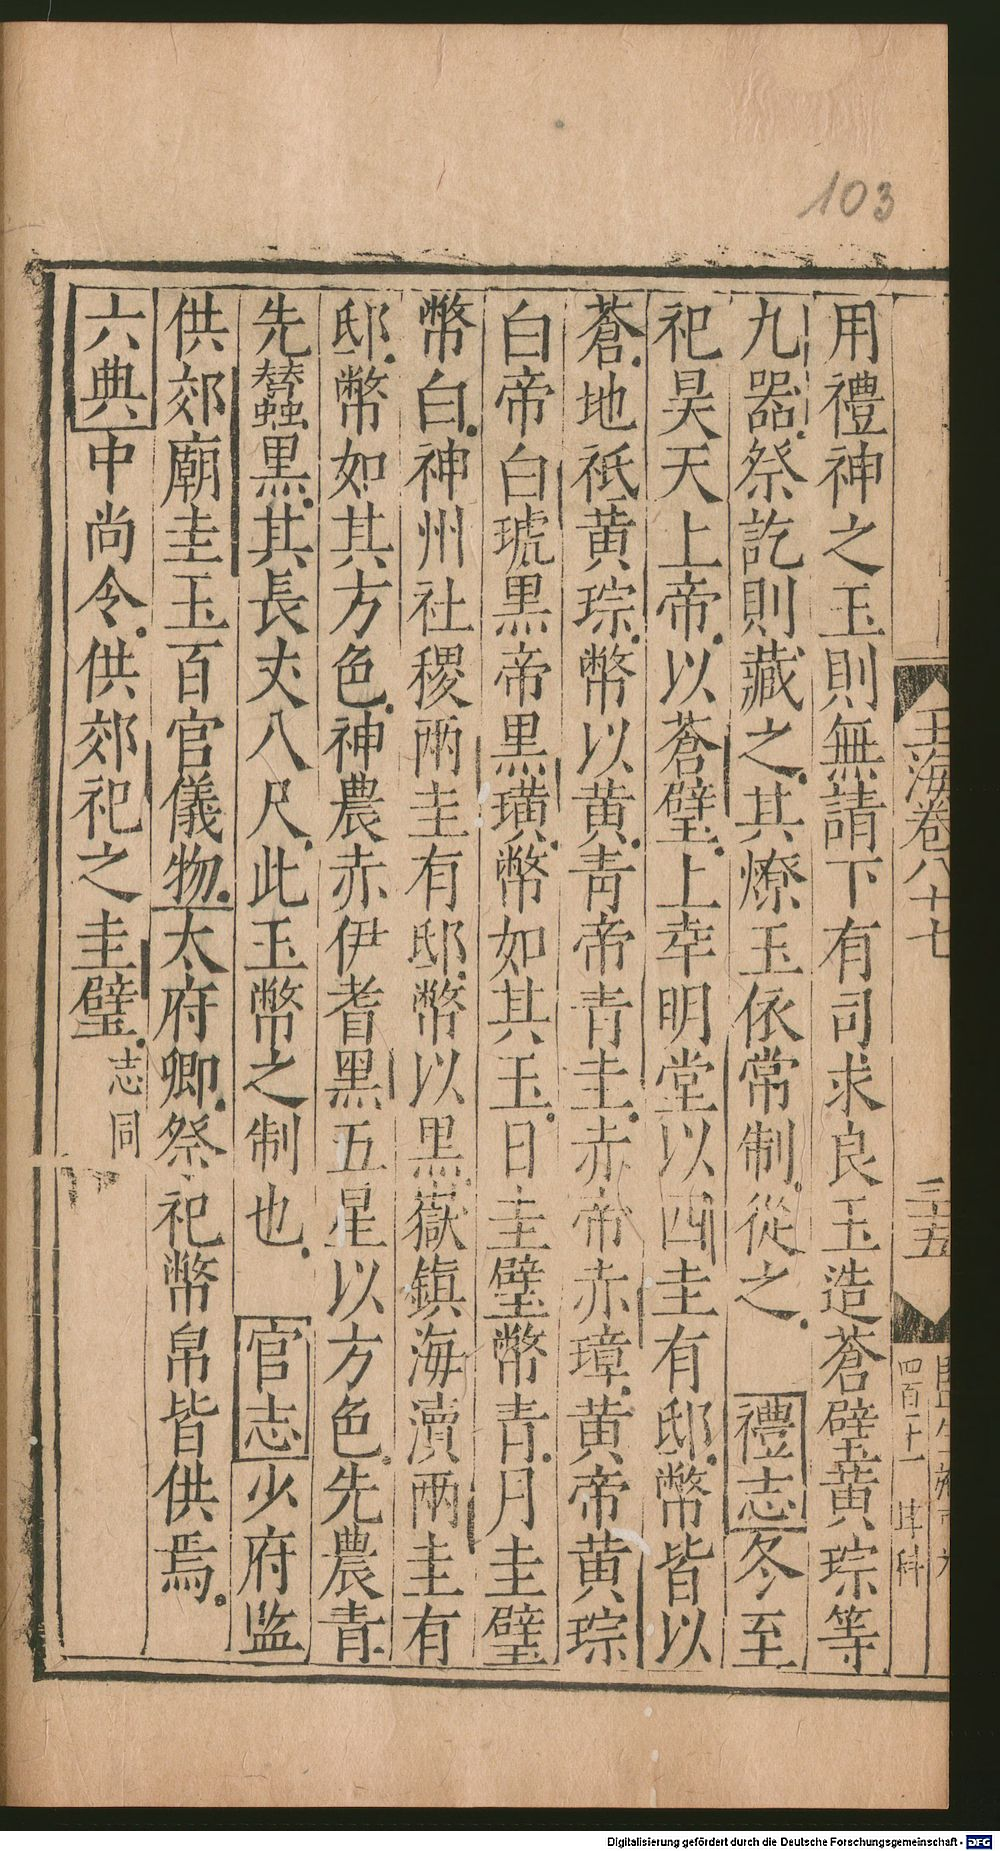 103
玉海卷八十七
三十五
四百十一
用禮神之玉則無請下有司求良玉造蒼璧黃琮等
九器祭訖則藏之其燎玉依常制從之 禮志冬至
祀昊天上帝以蒼璧上幸明堂以四圭有邸幣皆以
蒼地祇黃琮幣以黃青帝青圭赤帝赤璋黃帝黃琮
白帝白琥黑帝黑璜幣如其玉日圭璧幣青月圭璧
幣白神州社稷兩圭有邸幣以黑嶽鎮海瀆兩圭有
邸幣如其方色神農赤伊耆黑五星以方色先農青
先蠶黑其長丈八尺此玉幣之制也 官志少府監
供郊廟圭玉百官儀物太府卿祭祀幣帛皆供焉
六典中尚令供郊祀之圭璧志同
Digitalisierung gefördert durch die Deutsche Forschungsgemeinschaft - DFG